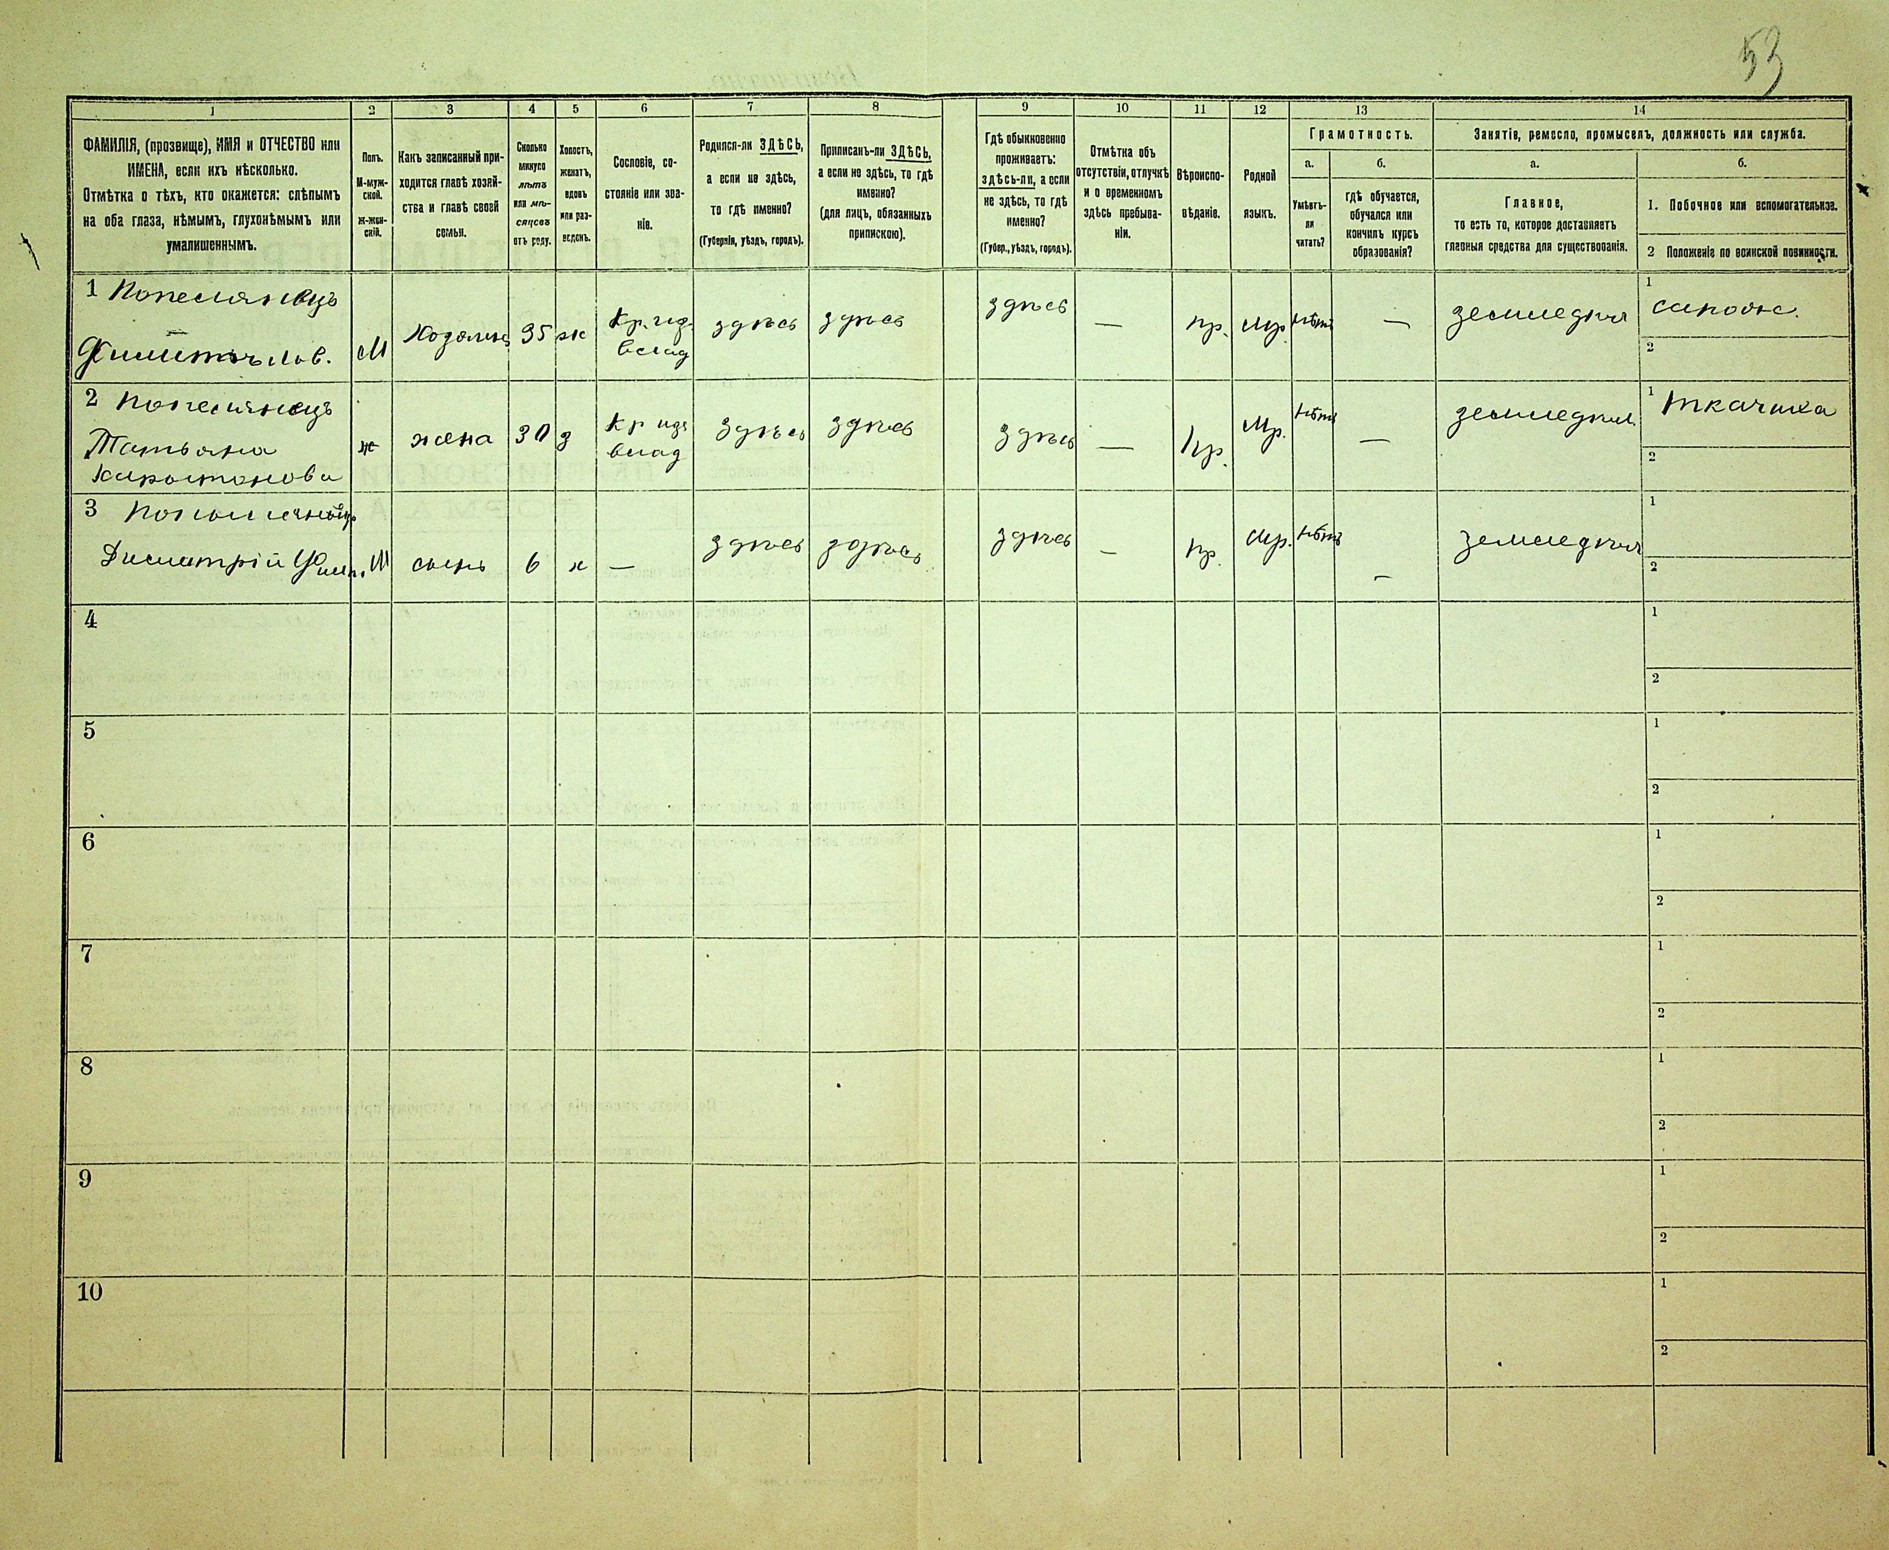 53
1 2 3 4 5 6 7 8 9 10 11 12 13 14
ФАМИЛІЯ, (прозвище), ИМЯ и ОТЧЕСТВО или
ИМЕНА, если ихъ нѣсколько.
Отмѣтка о тѣхъ, кто окажется: слѣпымъ
на оба глаза, нѣмымъ, глухонѣмымъ или
умалишеннымъ.
Полъ.
М-муж-
ской.
Ж-жен-
скій.
Какъ записанный при-
ходится главѣ хозяй-
ства и главѣ своей
семьи.
Сколько
минуло
лѣтъ
или мѣ-
сяцевъ
отъ роду.
Холостъ,
женатъ,
вдовъ
или раз-
веденъ.
Сословіе, со-
стояніе или зва-
ніе.
Родился-ли ЗДѢСЬ,
а если не здѣсь,
то гдѣ именно?
(Губернія, уѣздъ, городъ).
Приписанъ-ли ЗДѢСЬ,
а если не здѣсь, то гдѣ
именно?
(для лицъ, обязанныхъ
припискою).
Гдѣ обыкновенно
проживаетъ:
здѣсь-ли, а если
не здѣсь, то гдѣ
именно?
(Губер., уѣздъ, городъ).
Отмѣтка объ
отсутствіи, отлучкѣ
и о временномъ
здѣсь пребыва-
ніи.
Вѣроиспо-
вѣданіе.
Родной
языкъ.
Грамотность.
а. б.
Умѣетъ-
ли
читать?
гдѣ обучается,
обучался или
кончилъ курсъ
образованія?
Занятіе, ремесло, промыселъ, должность или служба.
а. б.
Главное,
то есть то, которое доставляетъ
главныя средства для существованія.
1. Побочное или вспомогательное.
2 Положеніе по воинской повинности.
1
М Хозяинъ 35 ж Кр. здѣсь здѣсь здѣсь — пр. Мр. нѣтъ — 1
2
2
Татьяна
ж жена 30 з Кр здѣсь здѣсь здѣсь — Пр. Мр. нѣтъ — 1 ткачиха
2
3
Димитрій М сынъ 6 х — здѣсь здѣсь здѣсь — пр. Мр. нѣтъ — 1
2
4 1
2
5 1
2
6 1
2
7 1
2
8 1
2
9 1
2
10 1
2